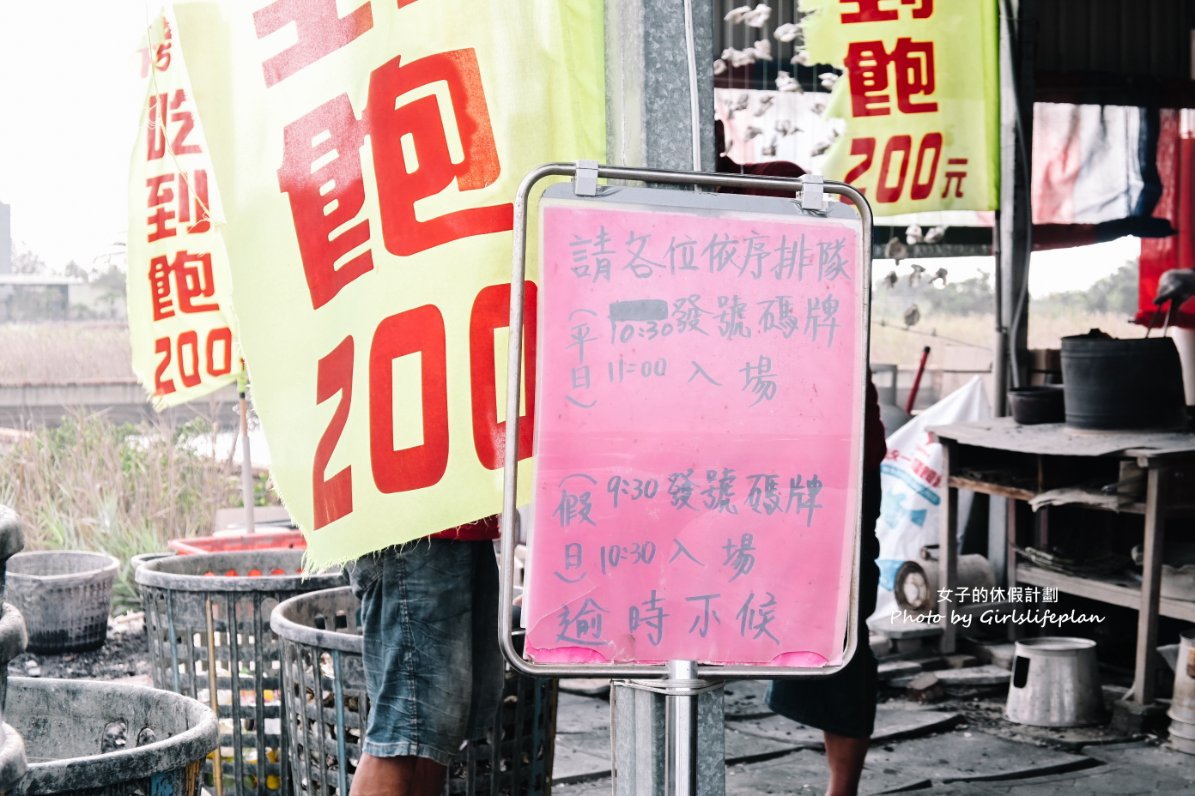 烤吃到飽200
吃到飽200
到飽200元
請各位依序排隊
(平日) 10:30發號碼牌
11:00 入場
(假日) 9:30發號碼牌
10:30入場
逾時不候
女子的休假計劃
Photo by Girlslifeplan